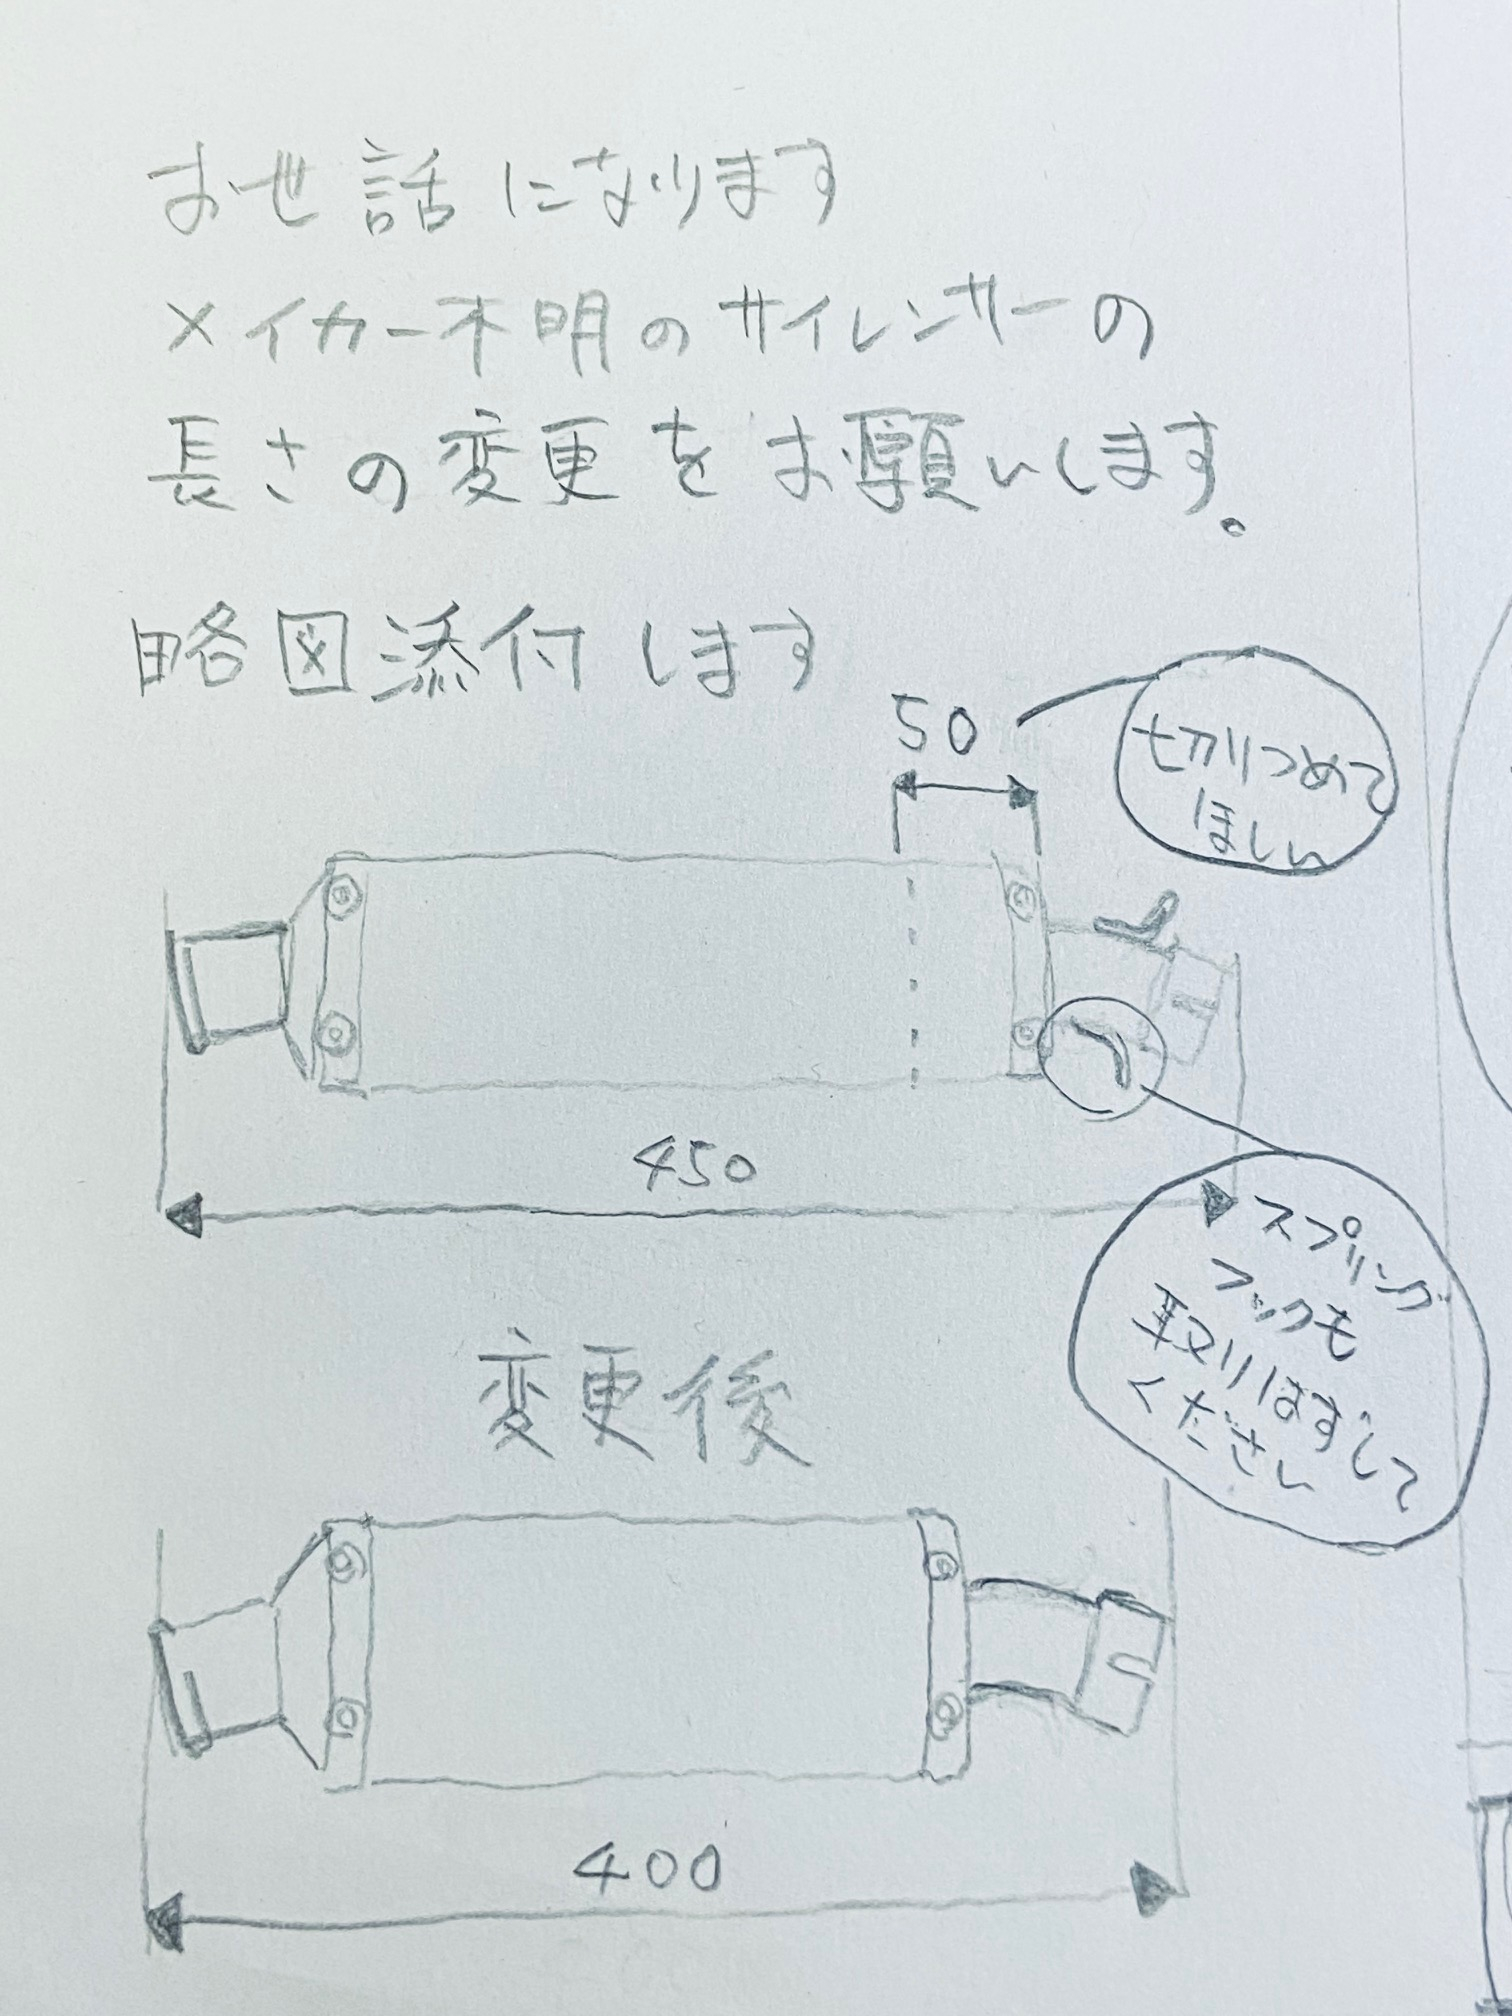 お世話になります
メイカー不明のサイレンサーの
長さの変更をお願いします。
略図添付します
50
切りつめて
ほしい
450
スプリング
フックも
取りはずして
ください
変更後
400